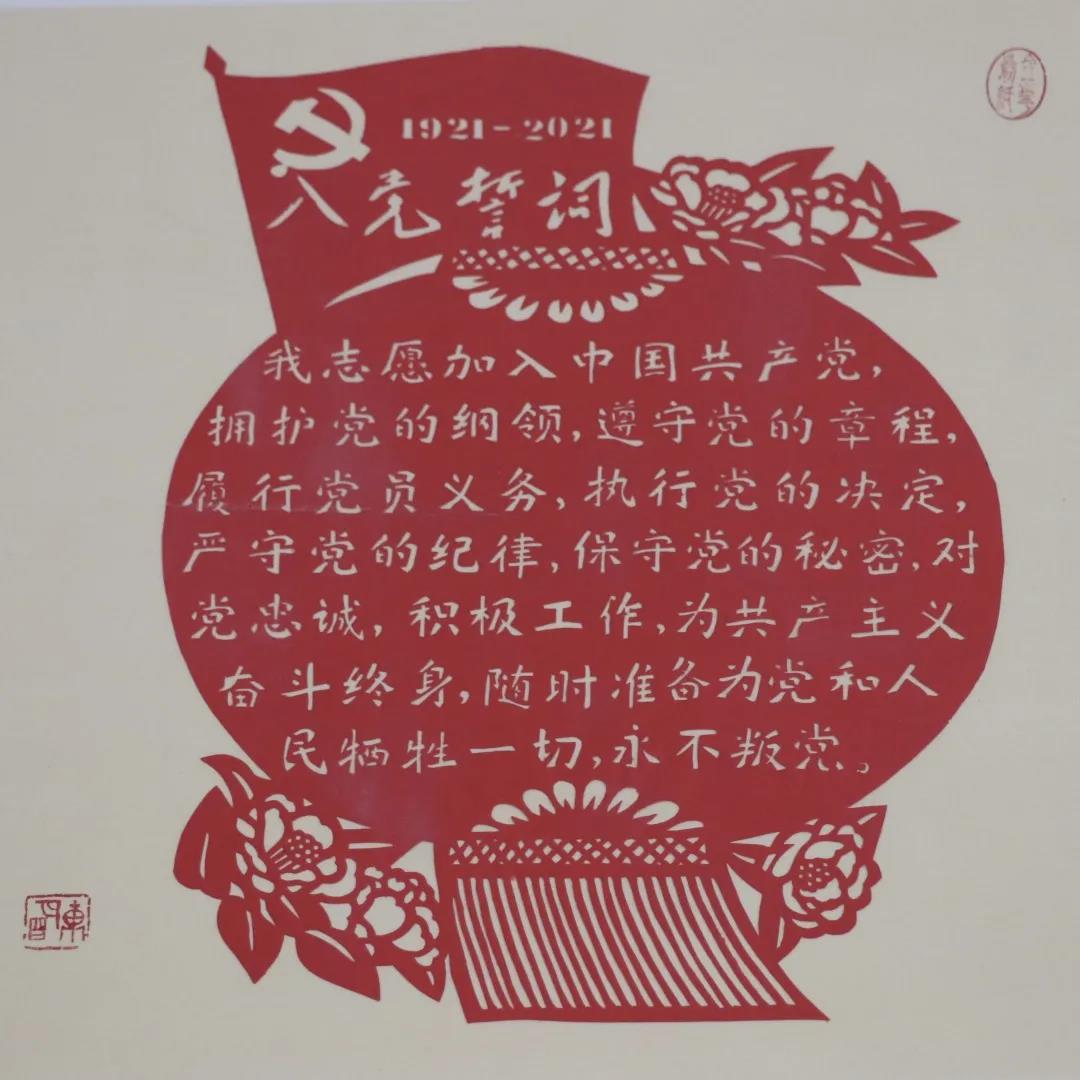 1921-2021
入党誓词
我志愿加入中国共产党,
拥护党的纲领,遵守党的章程,
履行党员义务,执行党的决定,
严守党的纪律,保守党的秘密,对
党忠诚,积极工作,为共产主义
奋斗终身,随时准备为党和人
民牺牲一切,永不叛党。